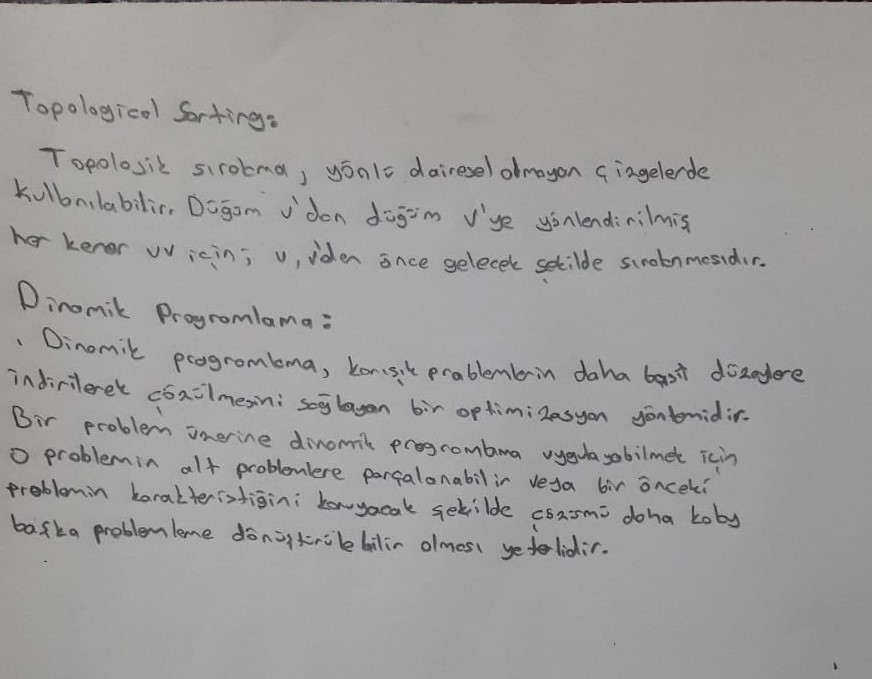 Topological Sorting:
Topolojik sıralama, yönlü dairesel olmayan çizgelerde
kullanılabilir. Düğüm u'dan düğüm v'ye yönlendirilmiş
her kenar uv için; u, v'den önce gelecek şekilde sıralanmasıdır.
Dinamik Programlama:
Dinamik programlama, karışık problemlerin daha basit düzeylere
indirilerek çözülmesini sağlayan bir optimizasyon yöntemidir.
Bir problem üzerine dinamik programlama uygulayabilmek için
o problemin alt problemlere parçalanabilir veya bir önceki
problemin karakteristiğini koruyacak şekilde çözümü daha kolay
başka problemleme dönüştürülebilir olması yeterlidir.